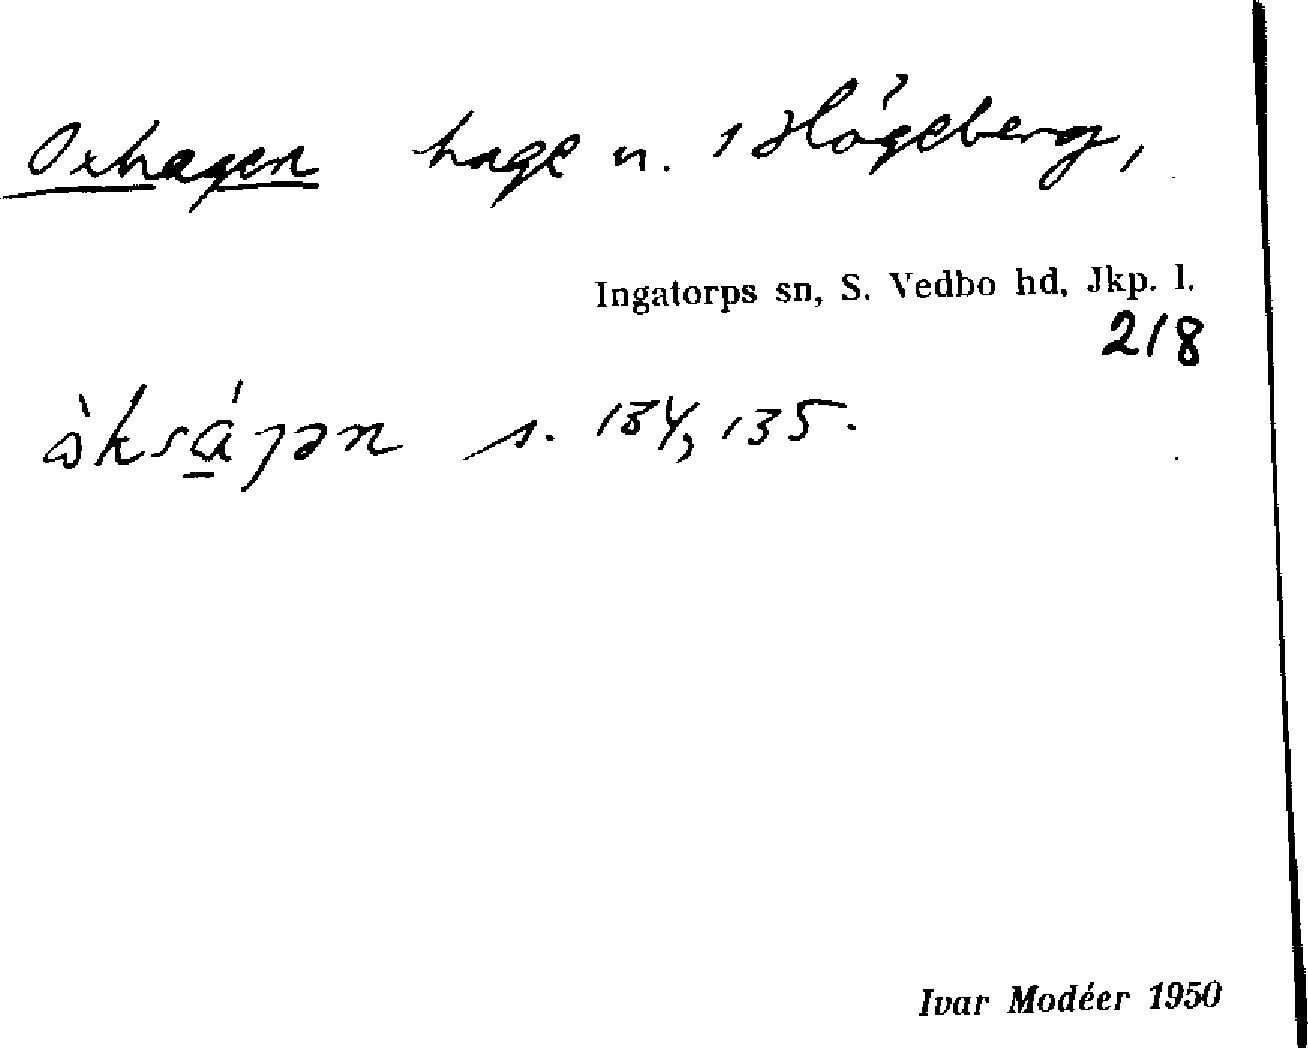 Oxhagen hage n. 1 Högeberg,
Ingatorps sn, S. Vedbo hd, Jkp. l.
218
s. 134, 135.
Ivar Modéer 1950